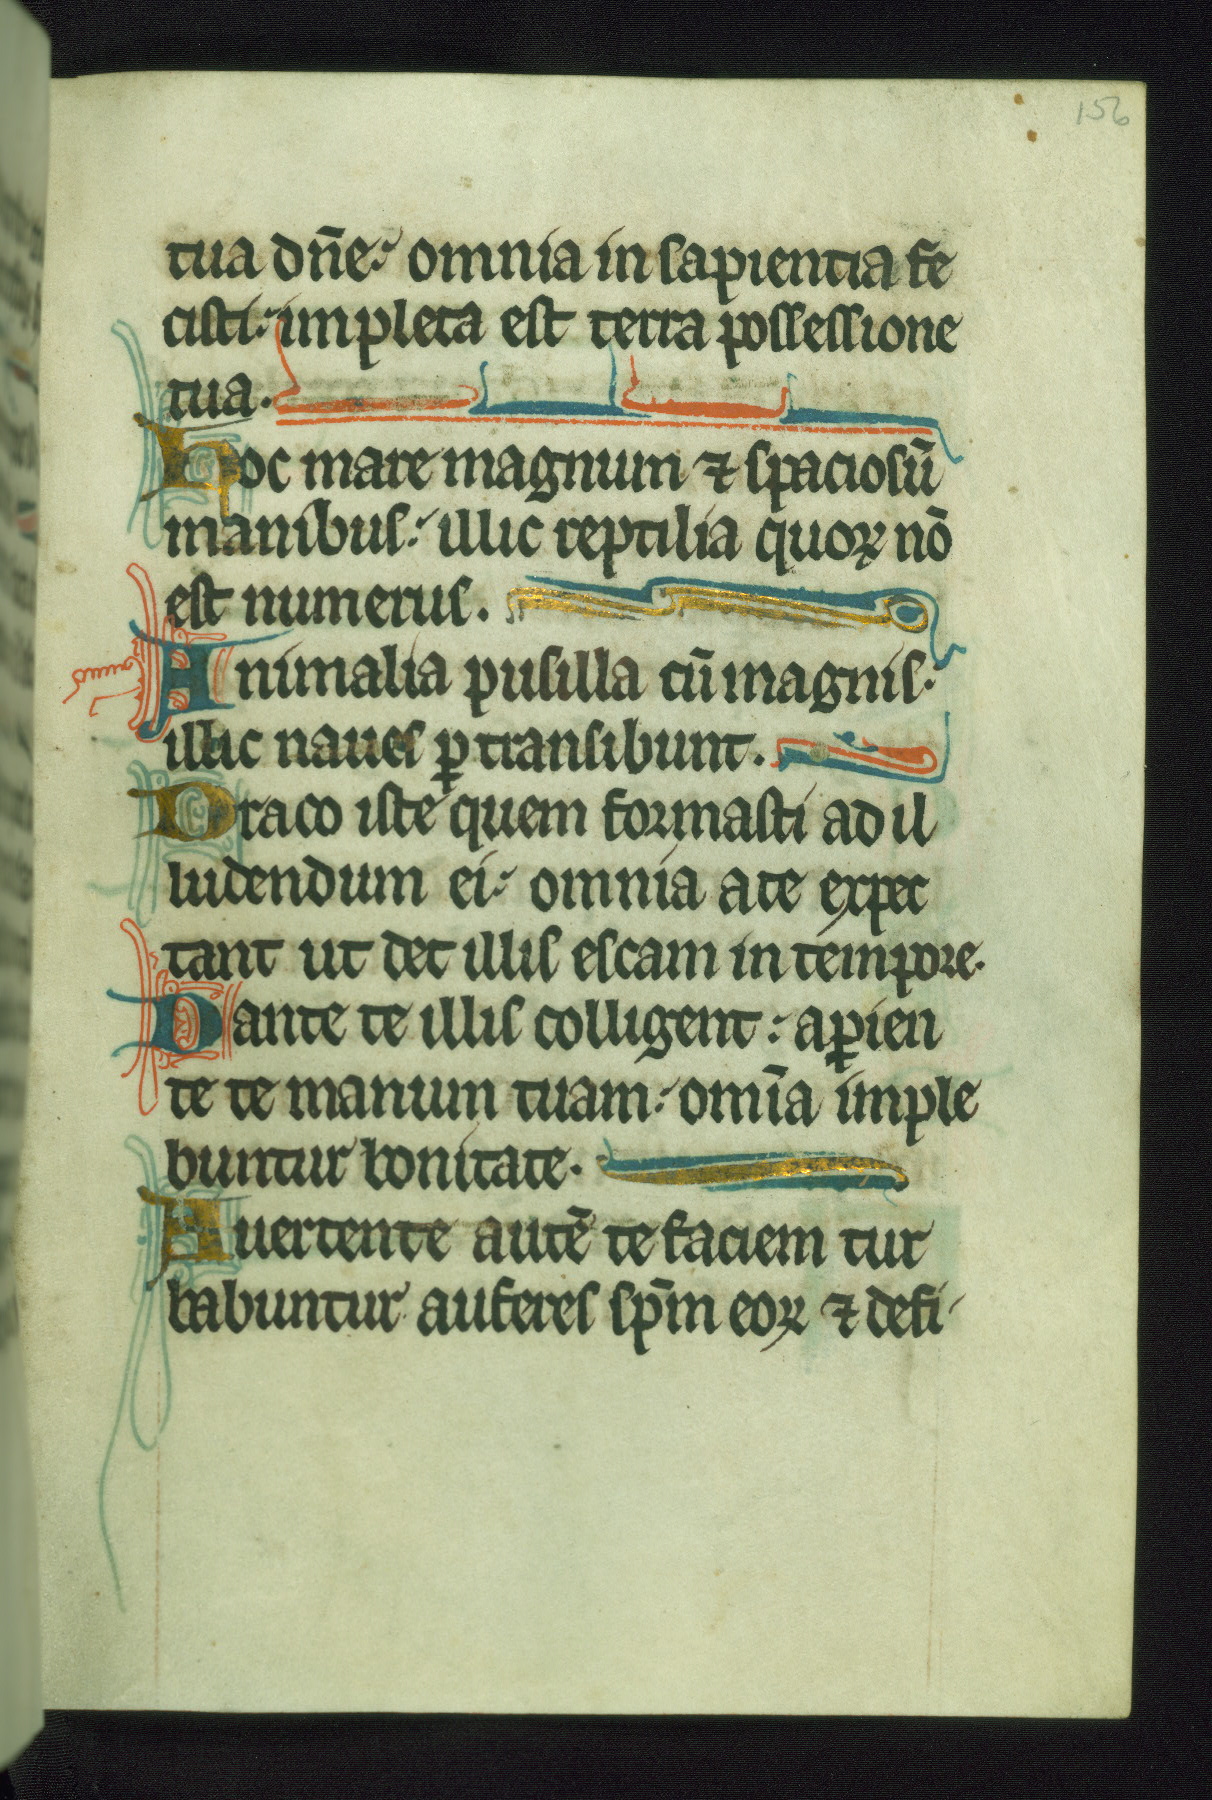 156
tua dn̄e: omnia in sapientia fe
cisti: impleta est terra possessione
tua.
Hoc mare magnum ⁊ spaciosū
manibus: illic reptilia quoꝝ nō
est numerus.
Animalia pusilla cū magnis:
illic naues ꝑtransibunt.
Draco iste quem formasti ad il
ludendum ei: omnia a te expec
tant ut det illis escam in tempore.
Dante te illis colligent: aꝑien
te te manum tuam: omīa imple
buntur bonitate.
Auertente autē te faciem tur
babuntur auferes sp̄m eoꝝ ⁊ defi-